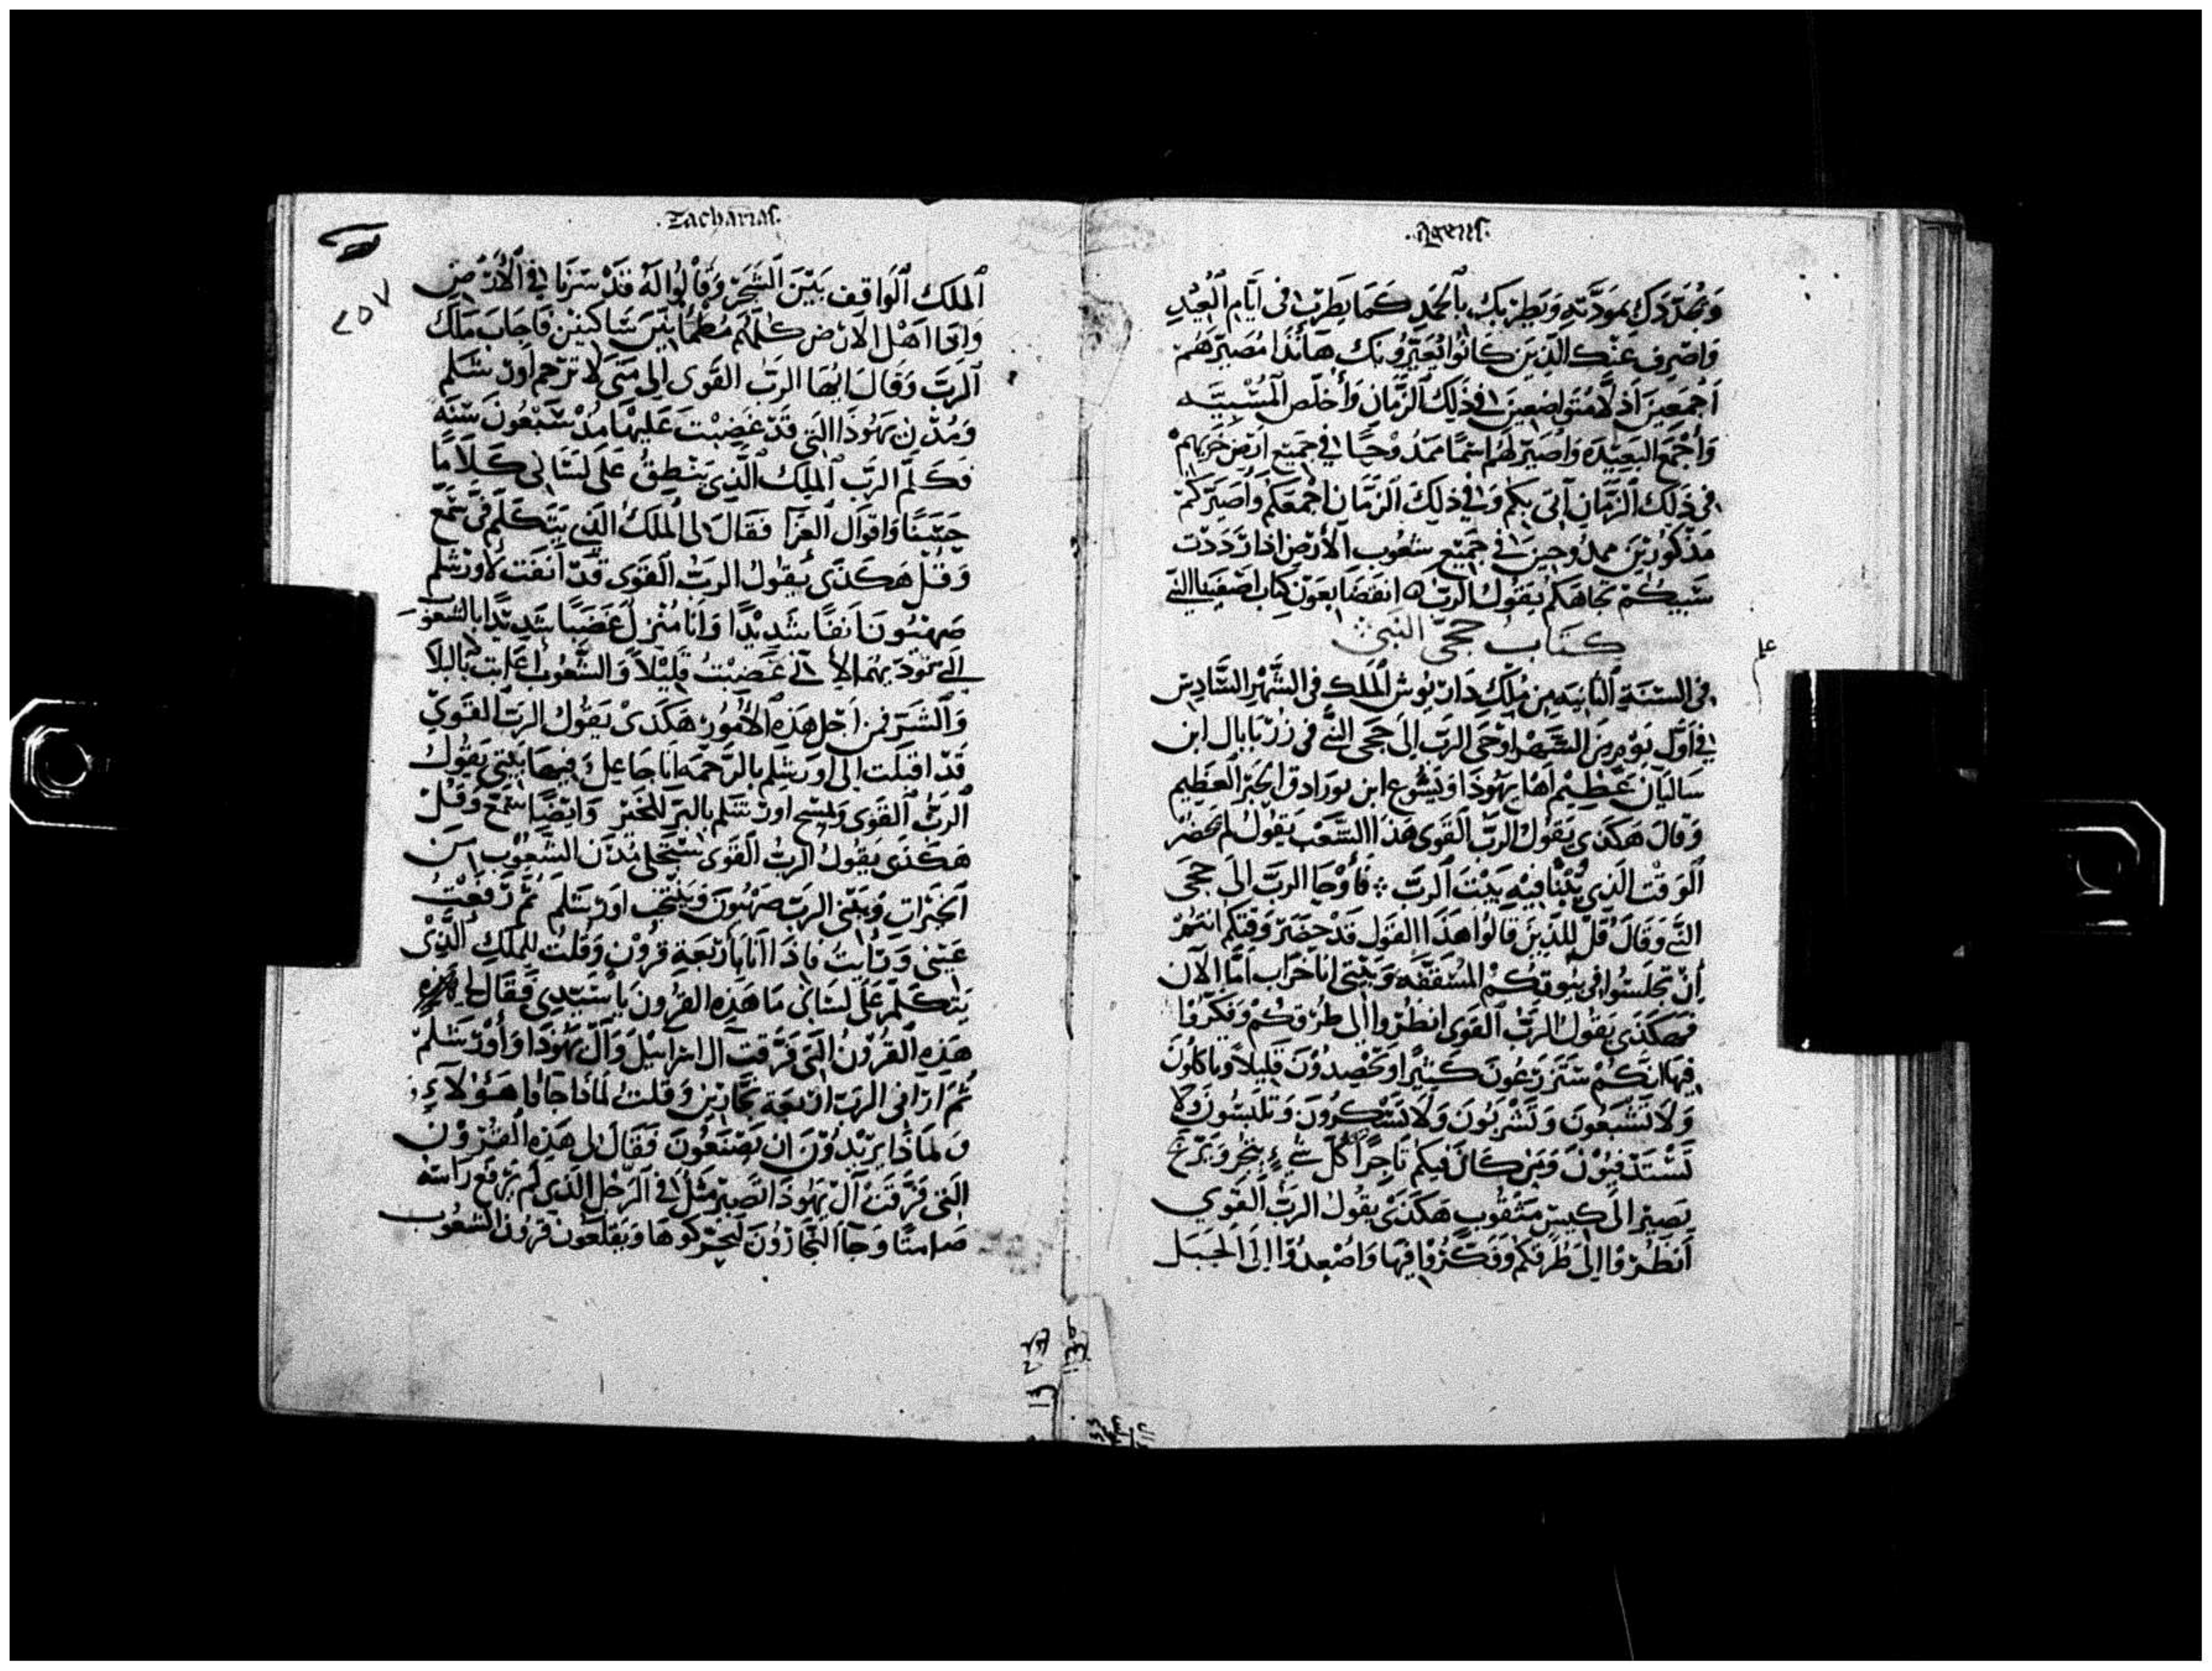 .Ageus.
وَيُجَدّدَك بمَودَّتهِ وَيَطرَبك بالحَمدِ كَمَا يطَرب في ايَّامِ العِيْدِ
وَاصْرف عَنْك الذيَن كَانُوا يُعَيّرُونك هَأنذَا مُصَيّرهُم
اَجْمَعِينَ اذلاَّ مُتَواضعِينَ في ذَلِك الزَّمَانِ وَأخلّص المسْبيَّه
وَأجْمَع البَعيْدَه وَاصَيّر لهُم اسْمًا ممَدُوْحًا في جَميع ارَض خَزيهم
في ذَلك الزَّمَانِ آتي بكم وَفي ذلك الزَّمَان اجْمَعَكم وَاصَيّركم
مَذكورْينَ ممدُوحِينَ في جَميْع شعُوب الأرْض اذا رَدَدْت
سَبيكُمْ تجَاهَكم يقوُل الرَبّ ه انقضَا بعَون كِتاب اصَفنيا النبّي
كتَاب حجَيّ النَبي
في السّنَةِ الثانِيه مِن مُلك دَاريُوش الملك في الشَّهْرِ السَّادِسْ
في أوّل يَوْمٍ مِنَ الشَّهْر اوْحَى الرَبّ إلَى حَجي النَّبي في زرُبَابال ابن
سَاليَال عَظِيْم اهَل يَهُوذا وَيَشُوع ابن يورَادق الحَبْر العَظِيم
وَقالَ هَكذى يَقوُل الرَبّ القوَى هَذا الشَعْب يَقوُل لم يحضُر
الوَقْت الَّذِي يُبْنَا فيْهِ بَيْتَ الرَبّ ∴ فَأوْحَا الرَبّ الى حَجي
النَّبي وَقالَ قلّ لِلّذيْنَ قالوُا هَذا القَول قدْ حَضَر وَقتكم انتُمْ
أن تجلسُوا في بيُوتكُمْ المُسَقَّفَه وَبَيْتي انا خرَاب امَّا الآن
فهَكَذى يَقوُل الرَبُّ القوَى انظُروا الى طرُقكُمْ وَفكّروُا
فيهَا انكُمْ سَتَزرَعُونَ كَثيْرًا وَتحْصِدُوْنَ قَلِيْلاً وَتاكلوُنَ
وَلاَ تَشْبَعُونَ وَتَشْرَبُونَ وَلاَ تَسْكرُونَ وَتلبَسُونَ وَلاَ
تَسْتَدْفيُوْنَ وَمَن كَانَ فيكم تاجِرًا كُلّ شيء يتجَر وَيَرْبح
يَصِيْر الى كيس مَثقُوب هَكذَى يَقوُل الرَبّ القَوي
اَنظُرُوا إلى طرُقكم وَفَكّرُوا فيْهَا وَاصْعِدُوْا إلَى الجَبَل
علم
.Zacharias.
٢٥٧
الملَك الوَاقف بَيْن الشَّجَر وَقالوُا لهُ قَدْ سرْنا في الأرْض
وَاذا اهْل الارْض كلّهُم مُطمَأنينَ سَاكنيْن فاجَابَ مَلَكْ
الرَبّ وَقالَ ايهَا الرَبّ القَوى الى مَتي لا تَرْحم اورْشَلم
وَمُدْنِ يَهُوذَا التي قَدْ غَضِبْت عَليْهَا مُذ سَّبْعُونَ سَنه
فكلّم الرَبّ الملك الَّذِي يَنْطِقُ عَلى لسَاني كلاَمًا
حَسَنًا وَاقوَال العزَا فقَالَ لي الملَك الّذي يَتكَلّم في سّمَع
وَقُلْ هَكَذى يَقوُل الرَبّ القَوى قَدْ أنفت لاورْشلم
صَهْيُون انفًا شَديْدًا وَأنا مُنْزل غَضَبًا شَديْدًا بالشعُوب
قَدْ اقبَلت الى اورَشلم بالرَحمَه انا جَاعِل فيهَا بَيْتي يقوُل
الرَبّ القَوى
هَكَذَى يَقوُل الرَبّ القَوى سَتمَتلى مُدُن الشعُوْب مِن
الخَيْرَات وَيَبْني الرَبّ صَهْيُونَ وَيَنْتخب اورْشلم ثمَّ رَفعْتُ
عَيْني وَرَايتُ فاذَا أنا بأرْبَعَةِ قرُوْن وَقُلت للملك الَّذِيْ
يَتكَلّم عَلى لسَاني مَا هَذِه القرُون يَا سَيّدي فقَالَ لي
هَذِه القرُونُ التي فَرّقت آل اسْرَائيْل وَآل يهُوذا وَأورْشَلم
ثمّ ارَاني الرَبّ ارْبَعَة نجَّاريْن وَقلتُ لماذا جَاؤا هَؤلاَءِ
وَلمَاذَا يريْدُونَ ان يَصْنَعُونَ فقَالَ لي هَذِه القرُوْن
التي فَرّقت آل يَهُوذا تصَيْر مَثل في الرَجُل الذي لم يَرفع رَاسَه
صَامتًا وَجَا النجَّارُونَ ليحَرّكوهَا وَيَقلعُون قرُون الشعُوب